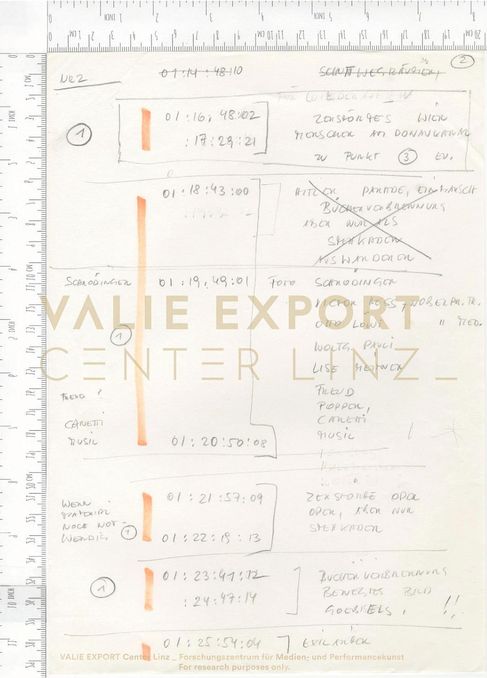 2
NR 2
01:14:48:10
01:16,48:02
ZERSTÖRTES WIEN
:17:29:21
MENSCHEN AM DONAUKANAL
1
ZU PUNKT 3 EV.
01:18:43:00
EINMARSCH
BÜCHERVERBRENNUNG
ABER NUR ALS
STANDBILDER
AUSWANDERER
SCHRÖDINGER 01:19,49:01 FOTO SCHRÖDINGER
VICTOR HESS, NOBELPR.
VALIE EXPORT
OTTO LOEWI " MED.
1
WOLFG. PAULI
CENTER LINZ_
LISE MEITNER
FREUD
FREUD
POPPER,
CANETTI
CANETTI
MUSIL
MUSIL
01:20:50:08
01:21:57:09
WENN
ZERSTÖRTE OPER
MATERIAL
NOCH NOT-
OPER, ABER NUR
WENDIG.
1
01:22:19:13
STANDBILDER
01:23:41:12
BÜCHERVERBRENNUNG
1
:24:47:14
BEWEGTES BILD
GOEBBELS, !!
01:25:54:04
VALIE EXPORT Center Linz _ Forschungszentrum für Medien- und Performancekunst
For research purposes only.